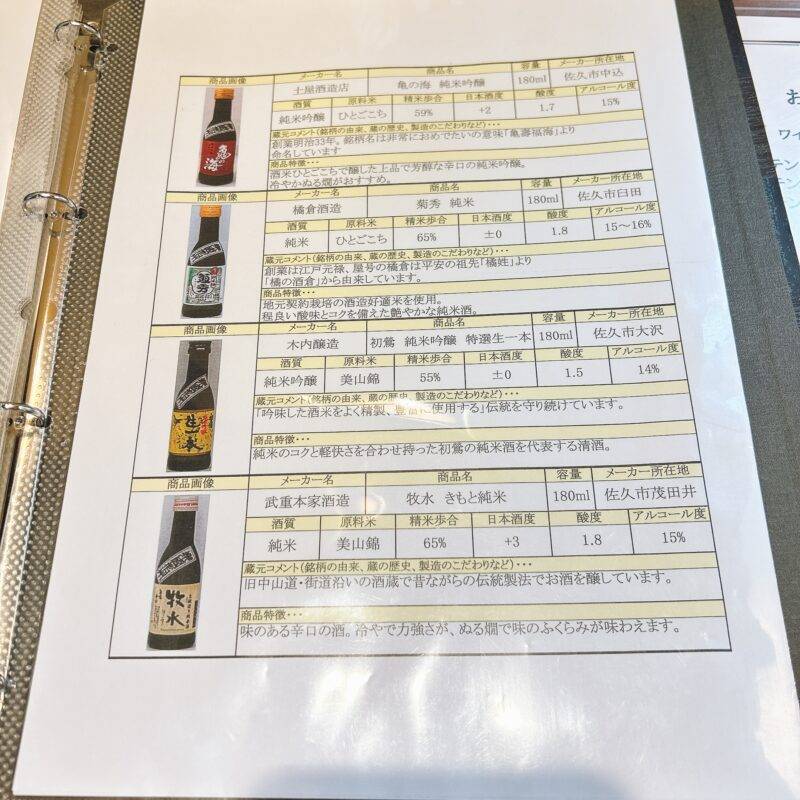 商品画像 メーカー名 商品名 容量 メーカー所在地
土屋酒造店 亀の海 純米吟醸 180ml 佐久市中込
酒質 原料米 精米歩合 日本酒度 酸度 アルコール度
純米吟醸 ひとごこち 59% +2 1.7 15%
蔵元コメント(銘柄の由来、蔵の歴史、製造のこだわりなど)・・・
創業明治33年。銘柄名は非常におめでたい意味「亀壽福海」より
命名しています
商品特徴・・・
酒米ひとごこちで醸した上品で芳醇な辛口の純米吟醸。
冷やかぬる燗がおすすめ。
商品画像 メーカー名 商品名 容量 メーカー所在地
橘倉酒造 菊秀 純米 180ml 佐久市臼田
酒質 原料米 精米歩合 日本酒度 酸度 アルコール度
純米 ひとごこち 65% ±0 1.8 15～16%
蔵元コメント(銘柄の由来、蔵の歴史、製造のこだわりなど)・・・
創業は江戸元禄、屋号の橘倉は平安の祖先「橘姓」より
「橘の酒倉」から由来しています。
商品特徴・・・
地元契約栽培の酒造好適米を使用。
程良い酸味とコクを備えた艶やかな純米酒。
商品画像 メーカー名 商品名 容量 メーカー所在地
木内醸造 初鶯 純米吟醸 特選生一本 180ml 佐久市大沢
酒質 原料米 精米歩合 日本酒度 酸度 アルコール度
純米吟醸 美山錦 55% ±0 1.5 14%
蔵元コメント(銘柄の由来、蔵の歴史、製造のこだわりなど)・・・
「吟味した酒米をよく精製、豊富に使用する」伝統を守り続けています。
商品特徴・・・
純米のコクと軽快さを合わせ持った初鶯の純米酒を代表する清酒。
商品画像 メーカー名 商品名 容量 メーカー所在地
武重本家酒造 牧水 きもと純米 180ml 佐久市茂田井
酒質 原料米 精米歩合 日本酒度 酸度 アルコール度
純米 美山錦 65% +3 1.8 15%
蔵元コメント(銘柄の由来、蔵の歴史、製造のこだわりなど)・・・
旧中山道・街道沿いの酒蔵で昔ながらの伝統製法でお酒を醸しています。
商品特徴・・・
味のある辛口の酒。冷やで力強さが、ぬる燗で味のふくらみが味わえます。
亀の海
生一本
牧水
お
ワイ
テン